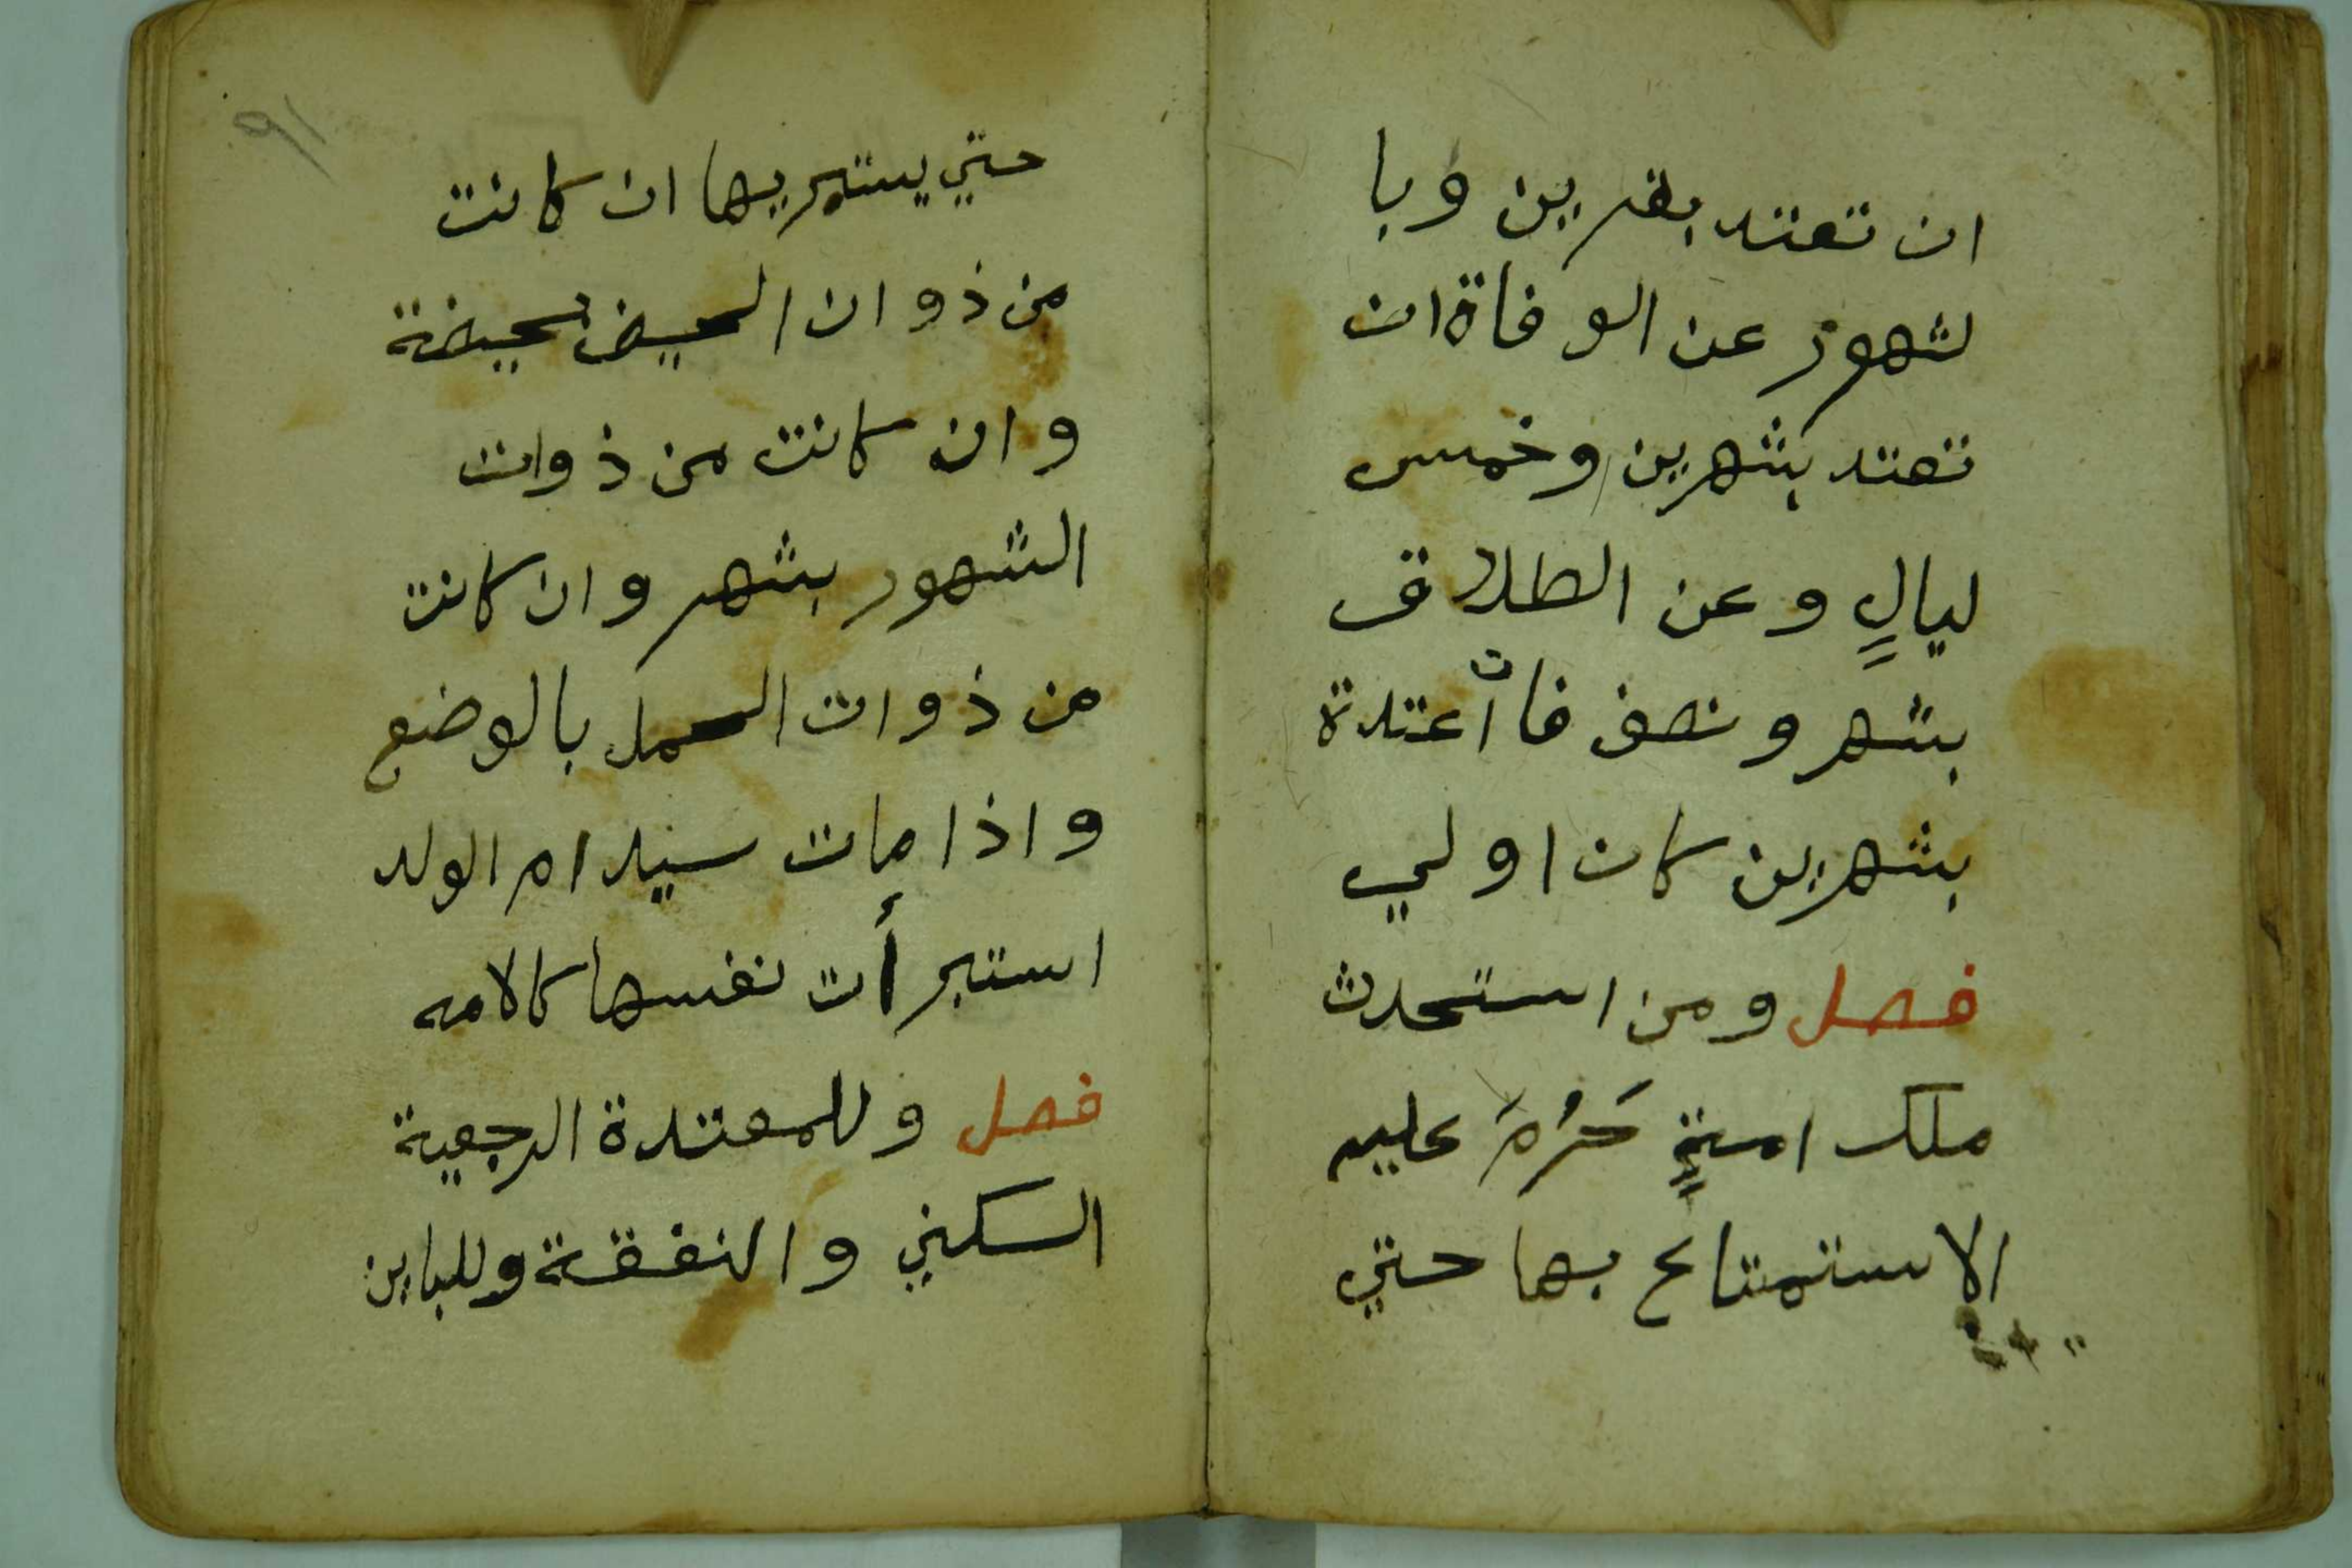 ان تعتد بقرين وبا
لشهور عن الوفاة ان
تعتد بشهرين وخمس
ليالٍ وعن الطلاق
بشهر ونصف فان أعتدة
بشهرين كان اولي
فصل ومن استحدث
ملك امةٍ حَرُمَ عليه
الاستمتاع بها حتي
٩١
حتي يستبريها ان كانت
من ذوات الحيض بحيضة
وان كانت من ذوات
الشهور بشهر وان كانت
من ذوات الحمل بالوضع
واذا مات سيد ام الولد
استبرأت نفسها كالامه
فصل وللمعتدة الرجعية
السكني والنفقة وللباين